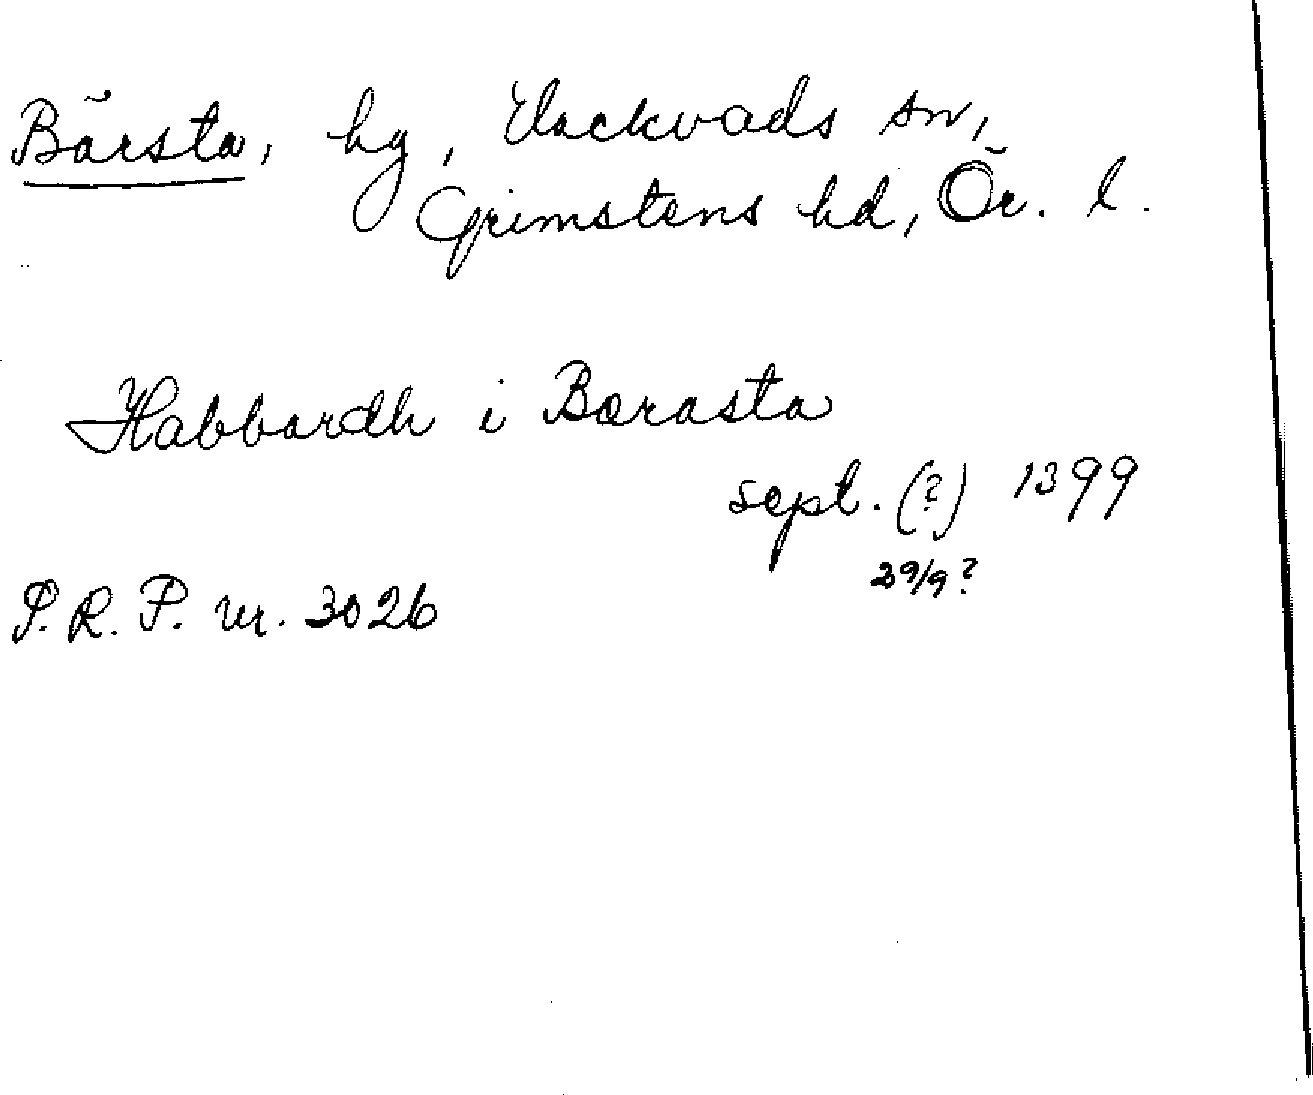 Bärsta, by, Hackvads sn,
Grimstens hd, Ör. l.
Habbardh i Bærasta
sept. (?) 1399
29/9?
S.R.P. nr. 3026